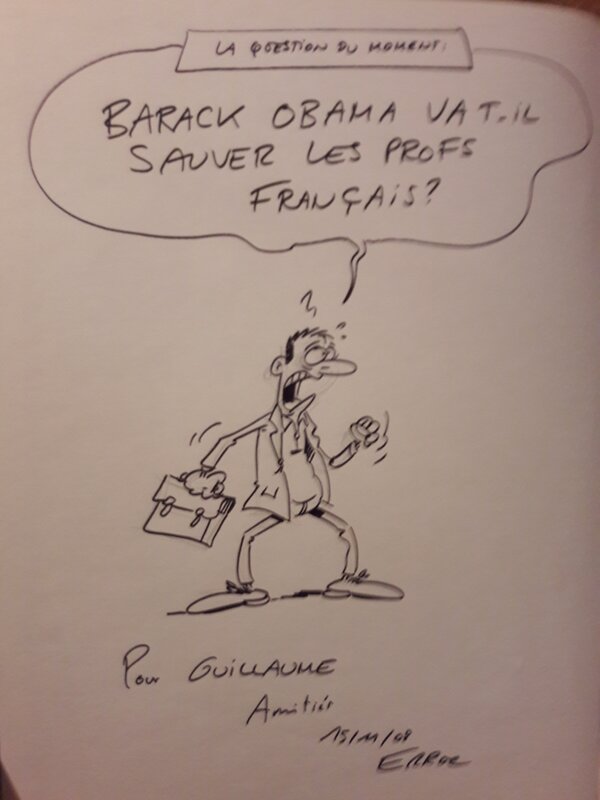 LA QUESTION DU MOMENT:
BARACK OBAMA VA T-IL
SAUVER LES PROFS
FRANÇAIS?
?
Pour GUILLAUME
Amitiés
15/11/08
ERROC